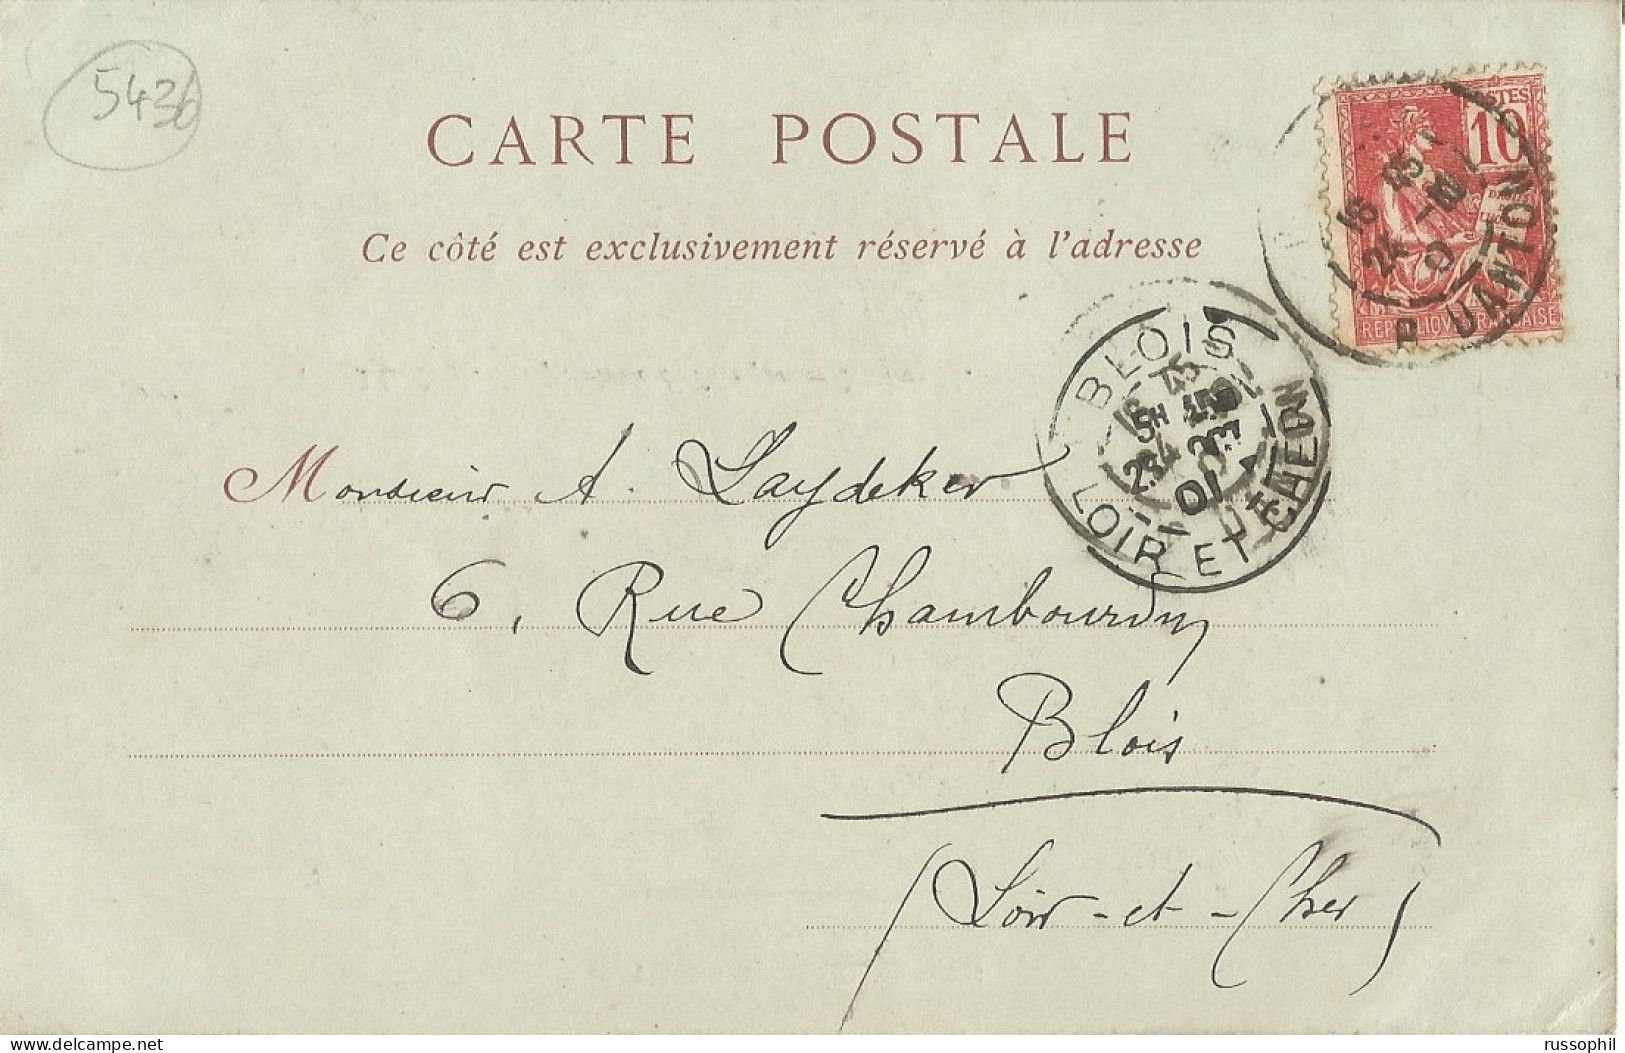 5436
CARTE POSTALE
Ce côté est exclusivement réservé à l'adresse
POSTES
10
16 45
24 -10
R. DANTON
REPUBLIQUE FRANÇAISE
BLOIS
LOIR ET CHER
01
Monsieur A. Laydeker
6, Rue Chambourdy
Blois
(Loir-et-Cher)
russophil
www.delcampe.net